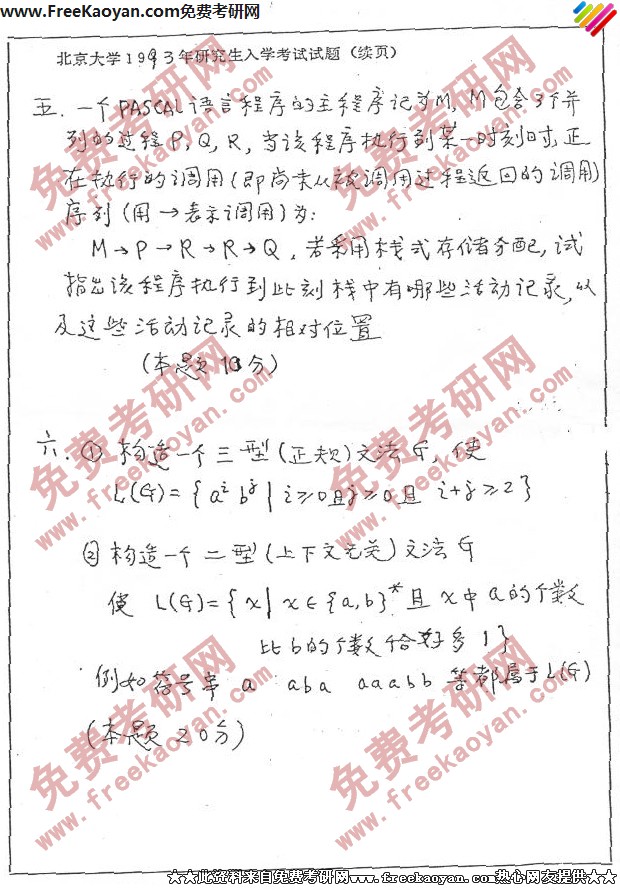 www.FreeKaoyan.com免费考研网
北京大学1993年研究生入学考试试题（续页）
五. 一个PASCAL语言程序的主程序记为M, M包含3个并
列的过程P, Q, R, 当该程序执行到某一时刻时, 正
在执行的调用(即尚未从被调用过程返回的调用)
序列(用→表示调用)为:
M→P→R→R→Q, 若采用栈式存储分配, 试
指出该程序执行到此刻栈中有哪些活动记录, 以
及这些活动记录的相对位置
(本题 10分)
六. ① 构造一个三型(正规)文法G, 使
L(G)={ aⁱ bʲ | i≥0且j≥0且 i+j≥2 }
② 构造一个二型(上下文无关)文法G
使 L(G)={ x | x∈{a,b}* 且 x中a的个数
比b的个数恰好多1}
例如符号串 a aba aaabb 等都属于L(G)
(本题 20分)
免费考研网
www.freekaoyan.com
免费考研网
www.freekaoyan.com
免费考研网
www.freekaoyan.com
免费考研网
www.freekaoyan.com
免费考研网
www.freekaoyan.com
免费考研网
www.freekaoyan.com
★★此资料来自免费考研网www.freekaoyan.com热心网友提供★★